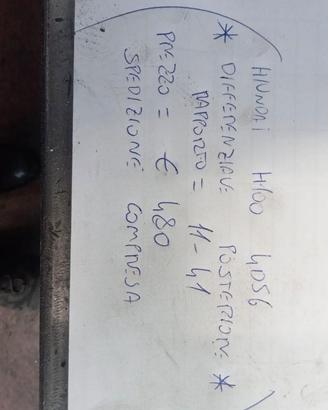 HIUNDAI H100 4D56
* DIFFERENZIALE POSTERIORE *
RAPPORTO = 11-41
PREZZO = € 480
SPEDIZIONE COMPRESA